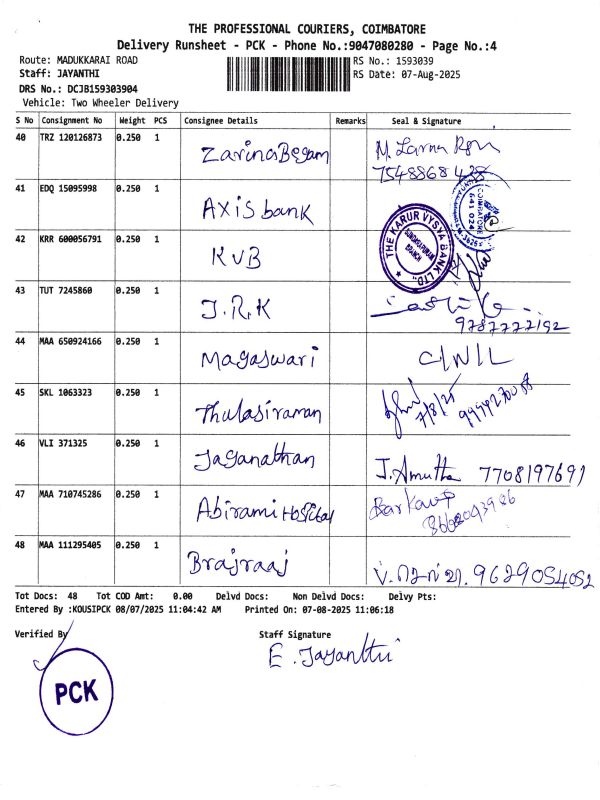 THE PROFESSIONAL COURIERS, COIMBATORE
Delivery Runsheet - PCK - Phone No.:9047080280 - Page No.:4
Route: MADUKKARAI ROAD RS No.: 1593039
Staff: JAYANTHI RS Date: 07-Aug-2025
DRS No.: DCJB159303904
Vehicle: Two Wheeler Delivery
S No Consignment No Weight PCS Consignee Details Remarks Seal & Signature
40 TRZ 120126873 0.250 1 Zarina Begam M.
41 EDQ 15095998 0.250 1 Axis bank COIMBATORE 641 024
42 KRR 600056791 0.250 1 KVB THE KARUR VYSYA BANK LTD. BRANCH
43 TUT 7245860 0.250 1 J.R.K 9787222192
44 MAA 650924166 0.250 1 Magaswari C/N/L
45 SKL 1063323 0.250 1 Thulasiraman 7/8/25
46 VLI 371325 0.250 1 Jaganathan J. Amutha 7708197691
47 MAA 710745286 0.250 1 Abirami Hospital
48 MAA 111295405 0.250 1 Brajraaj 9629054052
Tot Docs: 48 Tot COD Amt: 0.00 Delvd Docs: Non Delvd Docs: Delvy Pts:
Entered By :KOUSIPCK 08/07/2025 11:04:42 AM Printed On: 07-08-2025 11:06:18
Verified By Staff Signature
E. Jayanthi
PCK